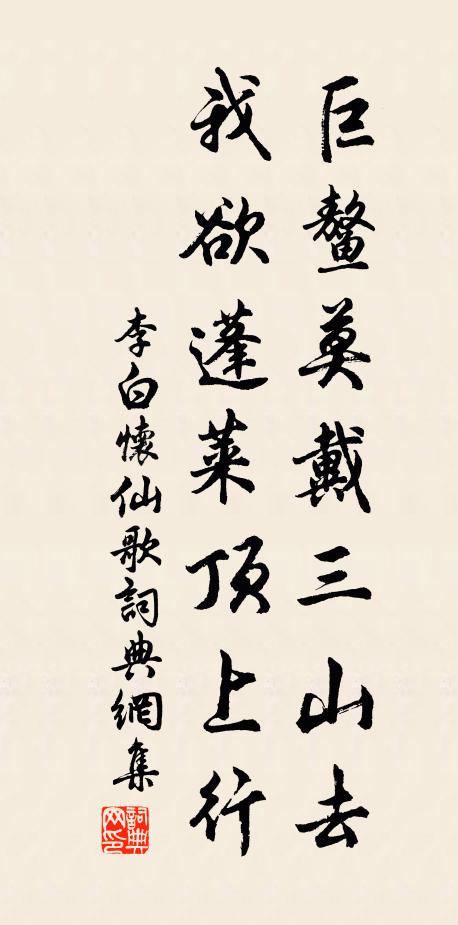 巨鳌莫戴三山去
我欲蓬莱頂上行
李白懷仙歌詞典網集
詞典网印